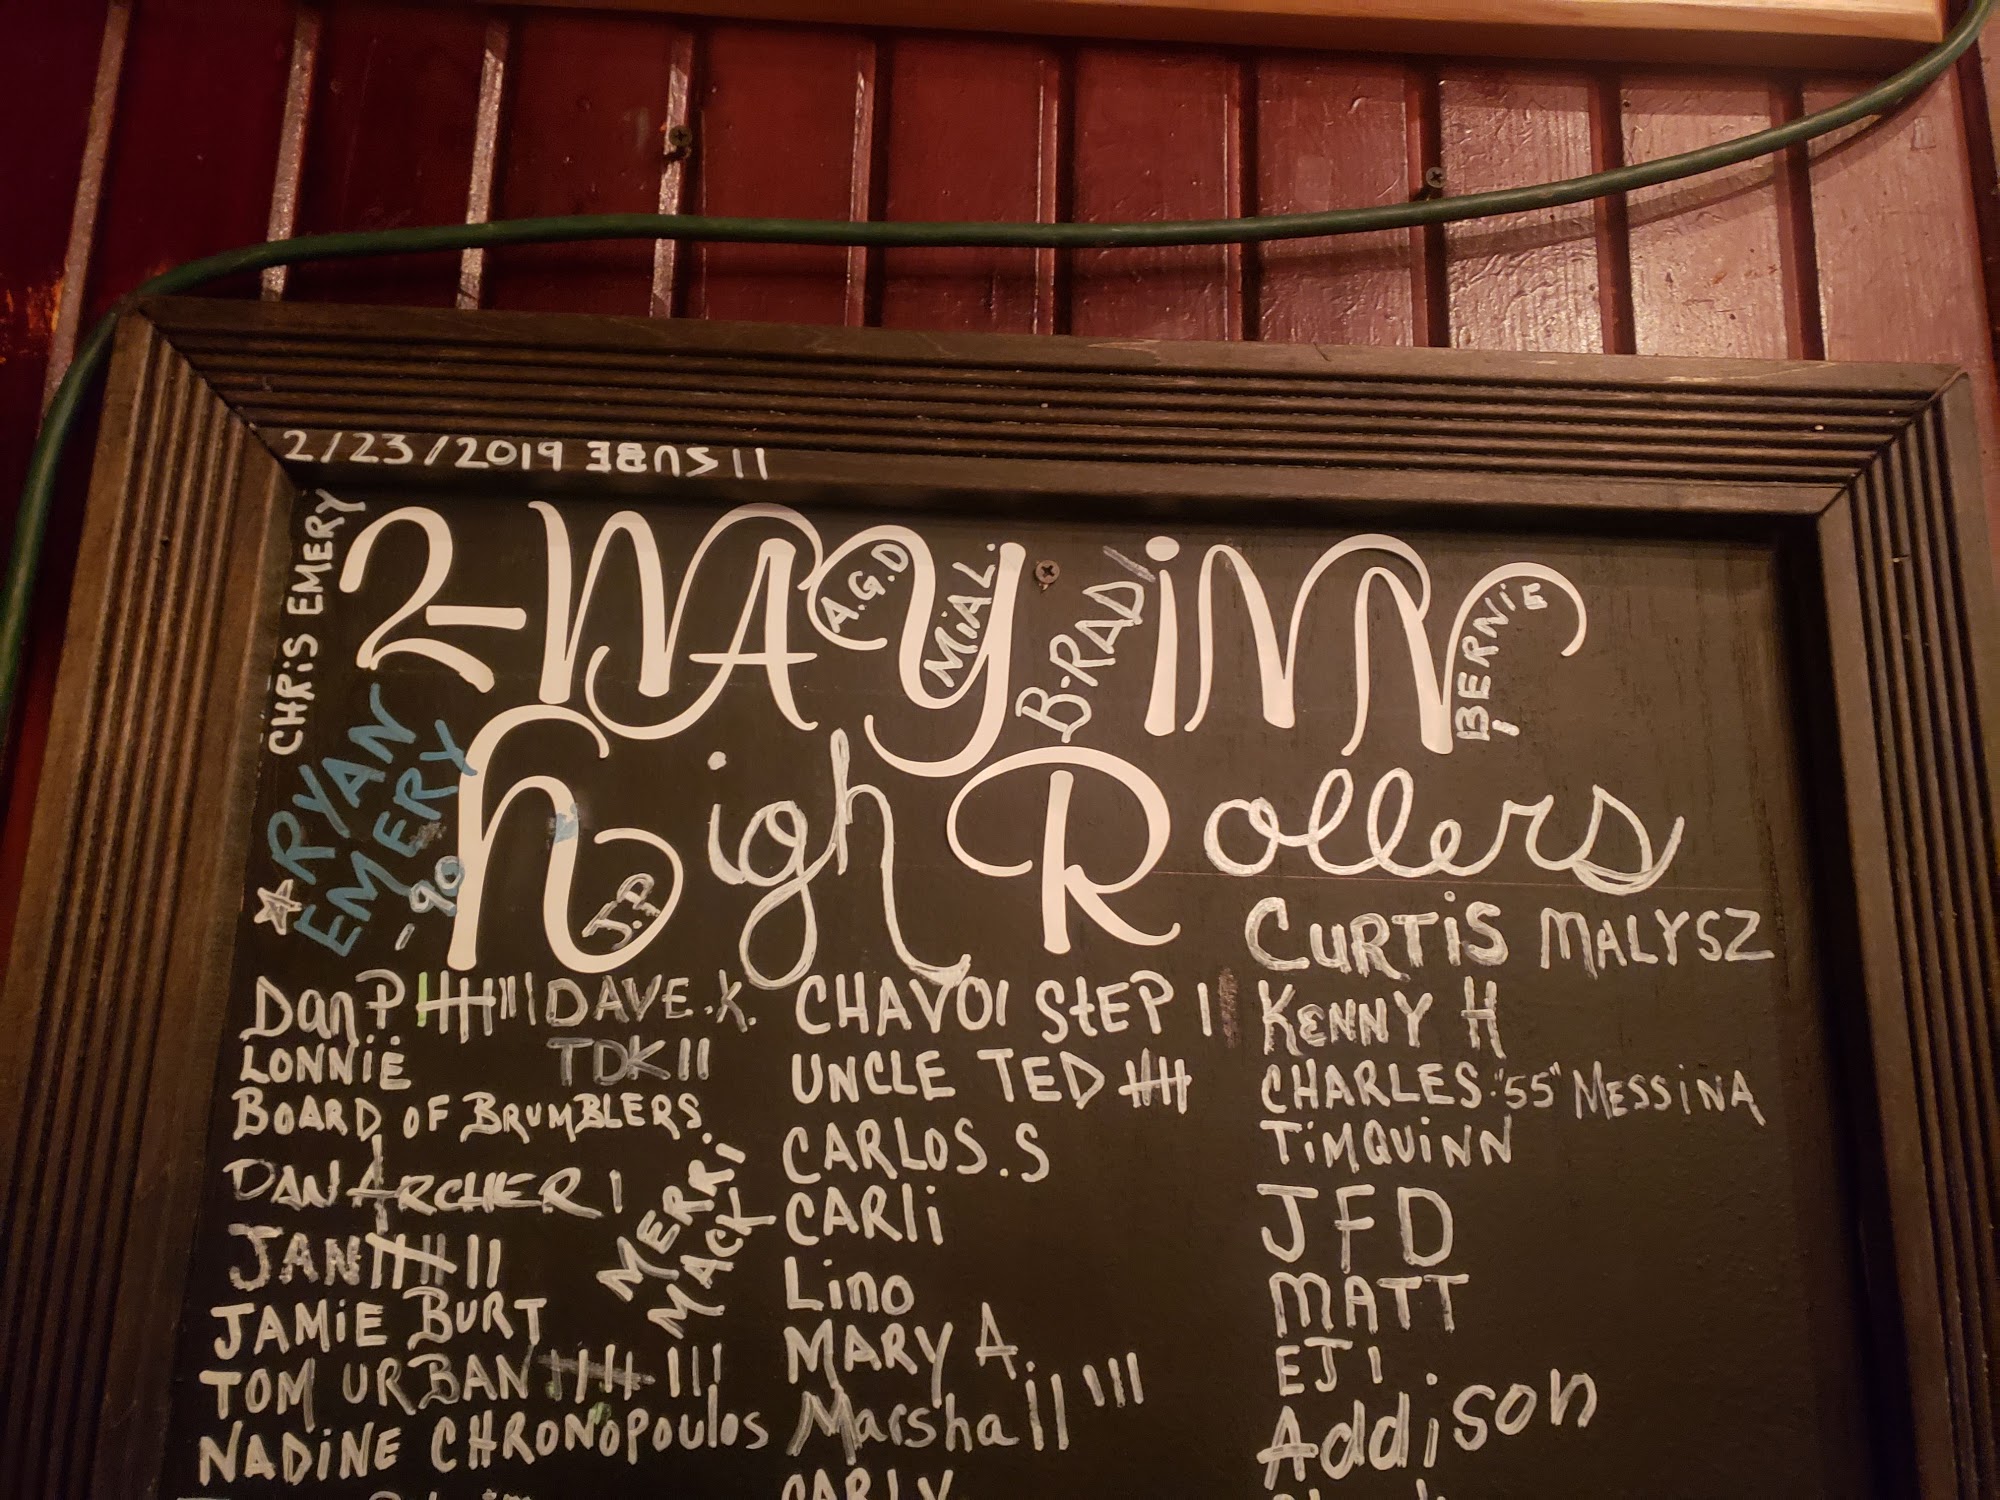 2/23/2019 ƎBUS II
CHRiS EMERY
2-WAY iNN
A.G.D
MiAL.
B-RAD
BERNiE!
RYAN
EMERY
-90
High Rollers
J.P.
CURTiS MALYSZ
Dan P
DAVE.K.
CHAVOI StEP I
KENNY H
LONNiE
TDK II
UNCLE TED
CHARLES "55" MESSiNA
BOARD OF BRUMBLERS
CARLOS.S
TiMQUiNN
DAN ARCHER I
MERRi
MACK
CARli
JFD
JAN
Lino
MATT
JAMiE BURT
MARY A.
EJ I
TOM URBAN
Marshall
Addison
NADiNE CHRONOPoulos
CARLY